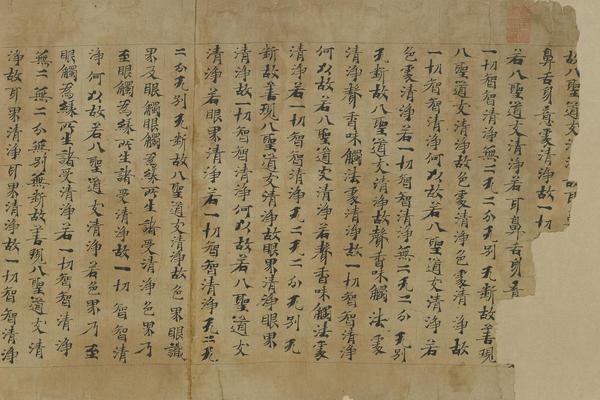 故八聖道支
鼻舌身意處清淨故一切
若八聖道支清淨若耳鼻舌身意
一切智智清淨無二无二分无別无斷故善現
八聖道支清淨故色處清淨色處清淨故
一切智智清淨何以故若八聖道支清淨若
色處清淨若一切智智清淨無二无二分无別
无斷故八聖道支清淨故聲香味觸法處
清淨聲香味觸法處清淨故一切智智清淨
何以故若八聖道支清淨若聲香味觸法處
清淨若一切智智清淨无二无二分无別无
斷故善現八聖道支清淨故眼界清淨眼界
清淨故一切智智清淨何以故若八聖道支
清淨若眼界清淨若一切智智清淨无二无
二分无別无斷故八聖道支清淨故色界眼識
界及眼觸眼觸為緣所生諸受清淨色界乃
至眼觸為緣所生諸受清淨故一切智智清
淨何以故若八聖道支清淨若色界乃至
眼觸為緣所生諸受清淨若一切智智清淨
無二無二分無別無斷故善現八聖道支清
淨故耳界清淨耳界清淨故一切智智清淨